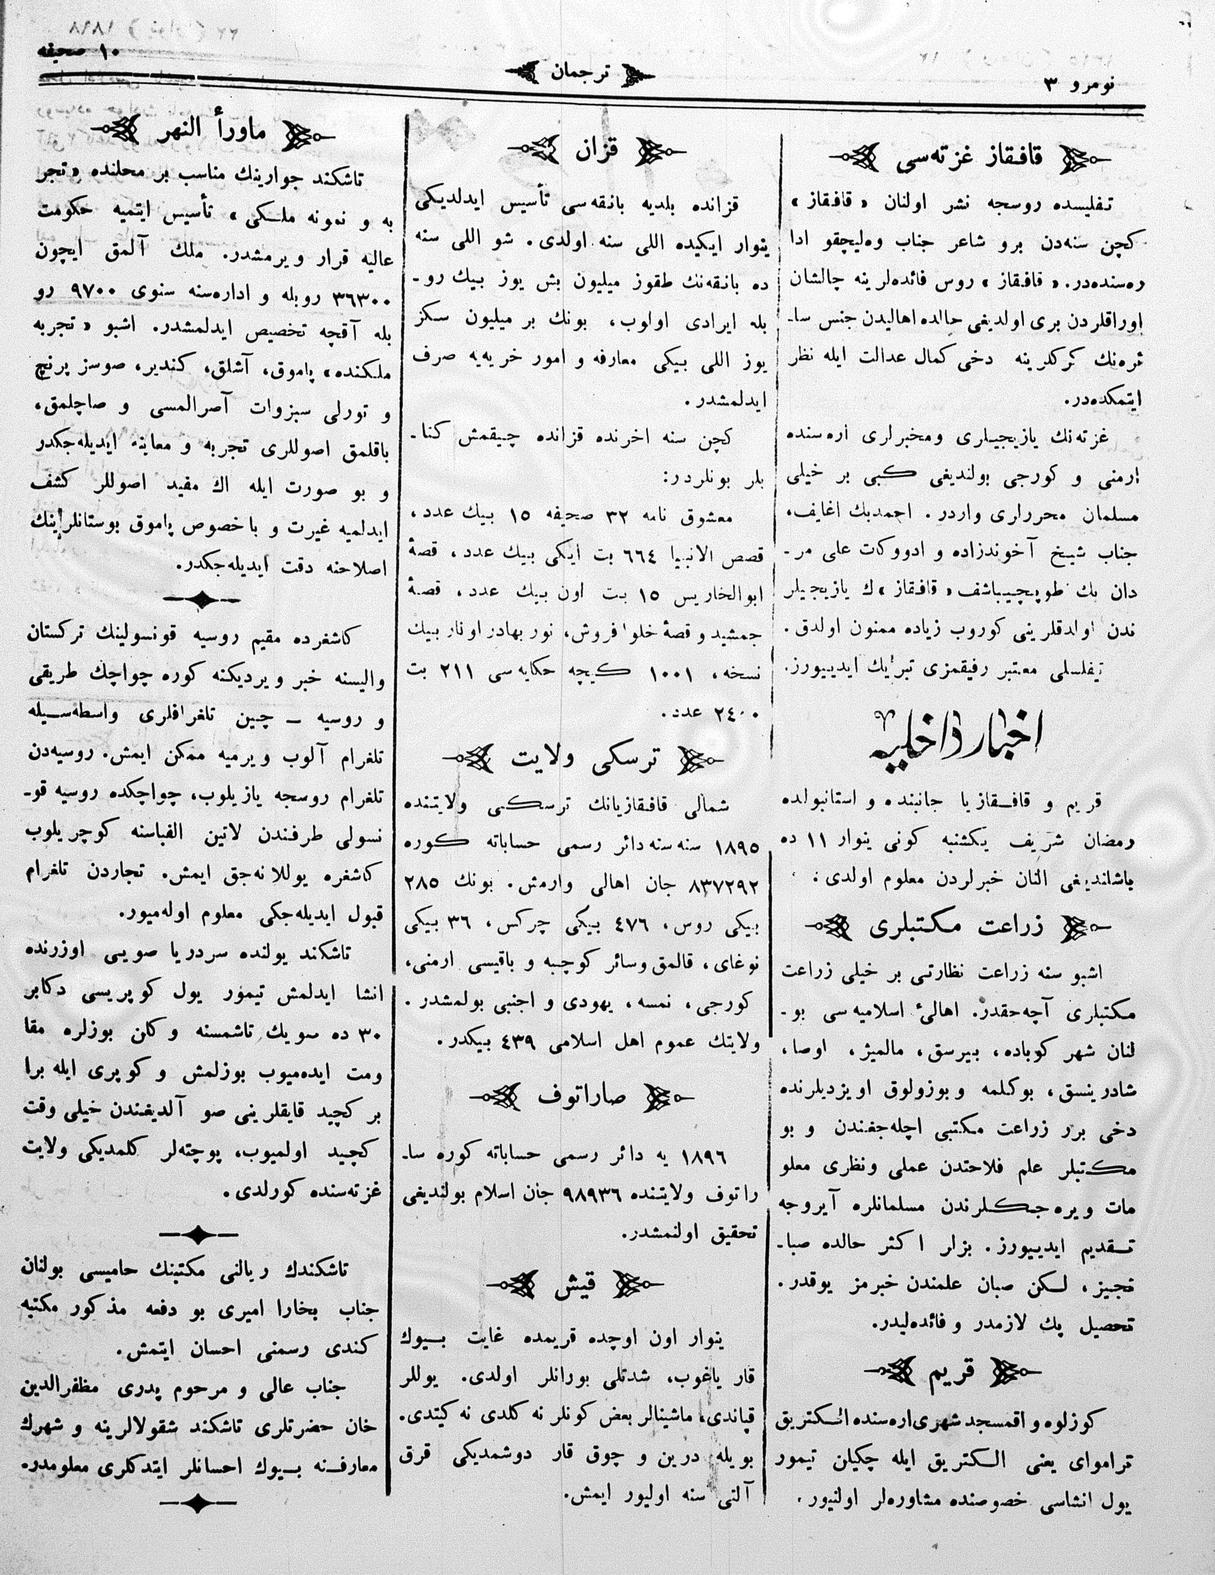 نومرو ٣
ترجمان
١٠ صحيفه
قافقاز غزته‌سی
تفليسده روسجه نشر اولنان «قافقاز»
كچن سنه‌دن برو شاعر جناب وه‌ليچقو ادا
ره‌سنده‌در. «قافقاز» روس فائده‌لرينه چالشان
اوراقلردن بری اولديغی حالده اهاليدن جنس سا-
ئره‌نك كركدرينه دخی كمال عدالت ايله نظر
ايتمكده‌در.
غزته‌نك يازيجيلری ومخبرلری اره‌سنده
ارمنی و كورجی بولنديغی كبی بر خيلی
مسلمان محررلری واردر. احمدبك اغايف،
جناب شيخ آخوندزاده و ادووكات علی مر-
دان بك طوپچيباشف «قافقاز»ك يازيجيلر
ندن اولدقلرينی كوروب زياده ممنون اولدق.
تيفلسلی معتبر رفيقمزی تبريك ايدييورز.
اخبار داخليه
قريم و قافقازيا جانبنده و استانبولده
رمضان شريف يكشنبه كونی ينوار ١١ ده
باشلنديغی النان خبرلردن معلوم اولدی.
زراعت مكتبلری
اشبو سنه زراعت نظارتی بر خيلی زراعت
مكتبلری آچه‌جقدر. اهالیٔ اسلاميه‌سی بو-
لنان شهر كوباده، بيرسق، مالميژ، اوصا،
شادرينسق، بوكلمه وبوزولوق اويزديلرنده
دخی برر زراعت مكتبی اچله‌جغندن و بو
مكتبلر علم فلاحتدن عملی ونظری معلو
مات ويره‌جكلرندن مسلمانلره آيروجه
تقديم ايدييورز. بزلر اكثر حالده صبا-
نجيز، لكن صبان علمندن خبرمز يوقدر.
تحصيل پك لازمدر و فائده‌ليدر.
قريم
كوزلوه و اقمسجد شهری اره‌سنده الكتريق
تراموای يعنی الكتريق ايله چكيلن تيمور
يول انشاسی خصوصنده مشاوره‌لر اولنيور.
قزان
قزانده بلديه بانقه‌سی تأسيس ايدلديكی
ينوار ايكيده اللی سنه اولدی. شو اللی سنه
ده بانقه‌نك طقوز ميليون بش يوز بيك رو-
بله ايرادی اولوب، بونك بر ميليون سكز
يوز اللی بيكی معارفه و امور خريه‌يه صرف
ايدلمشدر.
كچن سنه اخرنده قزانده چيقمش كتا-
بلر بونلردر:
معشوق نامه ٣٢ صحيفه ١٥ بيك عدد،
قصص الانبيا ٦٦٤ بت ايكی بيك عدد، قصهٔ
ابوالخاريس ١٥ بت اون بيك عدد، قصهٔ
جمشيد و قصهٔ حلوا فروش، نور بهادر اونار بيك
نسخه، ١٠٠١ كيچه حكايه‌سی ٢١١ بت
٢٤٠٠ عدد.
ترسكی ولايت
شمالی قافقازيانك ترسكی ولايتنده
١٨٩٥ سنه‌سنه دائر رسمی حساباته كوره
٨٣٧٢٩٢ جان اهالی وارمش. بونك ٢٨٥
بيكی روس، ٤٧٦ بيكی چركس، ٣٦ بيكی
نوغای، قالمق وسائر كوچبه و باقيسی ارمنی،
كورجی، نمسه، يهودی و اجنبی بولمشدر.
ولايتك عموم اهل اسلامی ٤٣٩ بيكدر.
صاراتوف
١٨٩٦ يه دائر رسمی حساباته كوره سا-
راتوف ولايتنده ٩٨٩٣٦ جان اسلام بولنديغی
تحقيق اولنمشدر.
قيش
ينوار اون اوچده قريمده غايت بيوك
قار ياغوب، شدتلی بورانلر اولدی. يوللر
قپاندی، ماشينالر بعض كونلر نه كلدی نه كيتدی.
بويله درين و چوق قار دوشمديكی قرق
آلتی سنه اوليور ايمش.
ماورأ النهر
تاشكند جوارينك مناسب بر محلنده «تجر
به و نمونه ملكی» تأسيس ايتميه حكومت
عاليه قرار ويرمشدر. ملك آلمق ايچون
٣٦٣٠٠ روبله و اداره‌سنه سنوی ٩٧٠٠ رو
بله آقچه تخصيص ايدلمشدر. اشبو «تجربه
ملكنده» پاموق، آشلق، كندير، صوسز پرنج
و تورلی سبزوات آصرالمسی و صاچلمق،
باقلمق اصوللری تجربه و معاينه ايديله‌جكدر
و بو صورت ايله اك مفيد اصوللر كشف
ايدلميه غيرت و باخصوص پاموق بوستانلرينك
اصلاحنه دقت ايديله‌جكدر.
كاشغرده مقيم روسيه قونسولينك تركستان
واليسنه خبر ويرديكنه كوره چواچك طريقی
و روسيه ــ چين تلغرافلری واسطه‌سيله
تلغرام آلوب ويرميه ممكن ايمش. روسيه‌دن
تلغرام روسجه يازيلوب، چواچكده روسيه قو-
نسولی طرفندن لاتين الفباسنه كوچريلوب
كاشغره يوللانه‌جق ايمش. تجاردن تلغرام
قبول ايديله‌جكی معلوم اوله‌ميور.
تاشكند يولنده سردريا صويی اوزرنده
انشا ايدلمش تيمور يول كوپريسی دكابر
٣٠ ده سويك تاشمسنه وكان بوزلره مقا
ومت ايده‌ميوب بوزلمش و كوپری ايله برا
بر كچيد قايقلرينی صو آلديغندن خيلی وقت
كچيد اولميوب، پوچته‌لر كلمديكی ولايت
غزته‌سنده كورلدی.
تاشكندك ريالنی مكتبنك حاميسی بولنان
جناب بخارا اميری بو دفعه مذكور مكتبه
كندی رسمنی احسان ايتمش.
جناب عالی و مرحوم پدری مظفرالدين
خان حضرتلری تاشكند شقولالرينه و شهرك
معارفنه بيوك احسانلر ايتدكلری معلومدر.